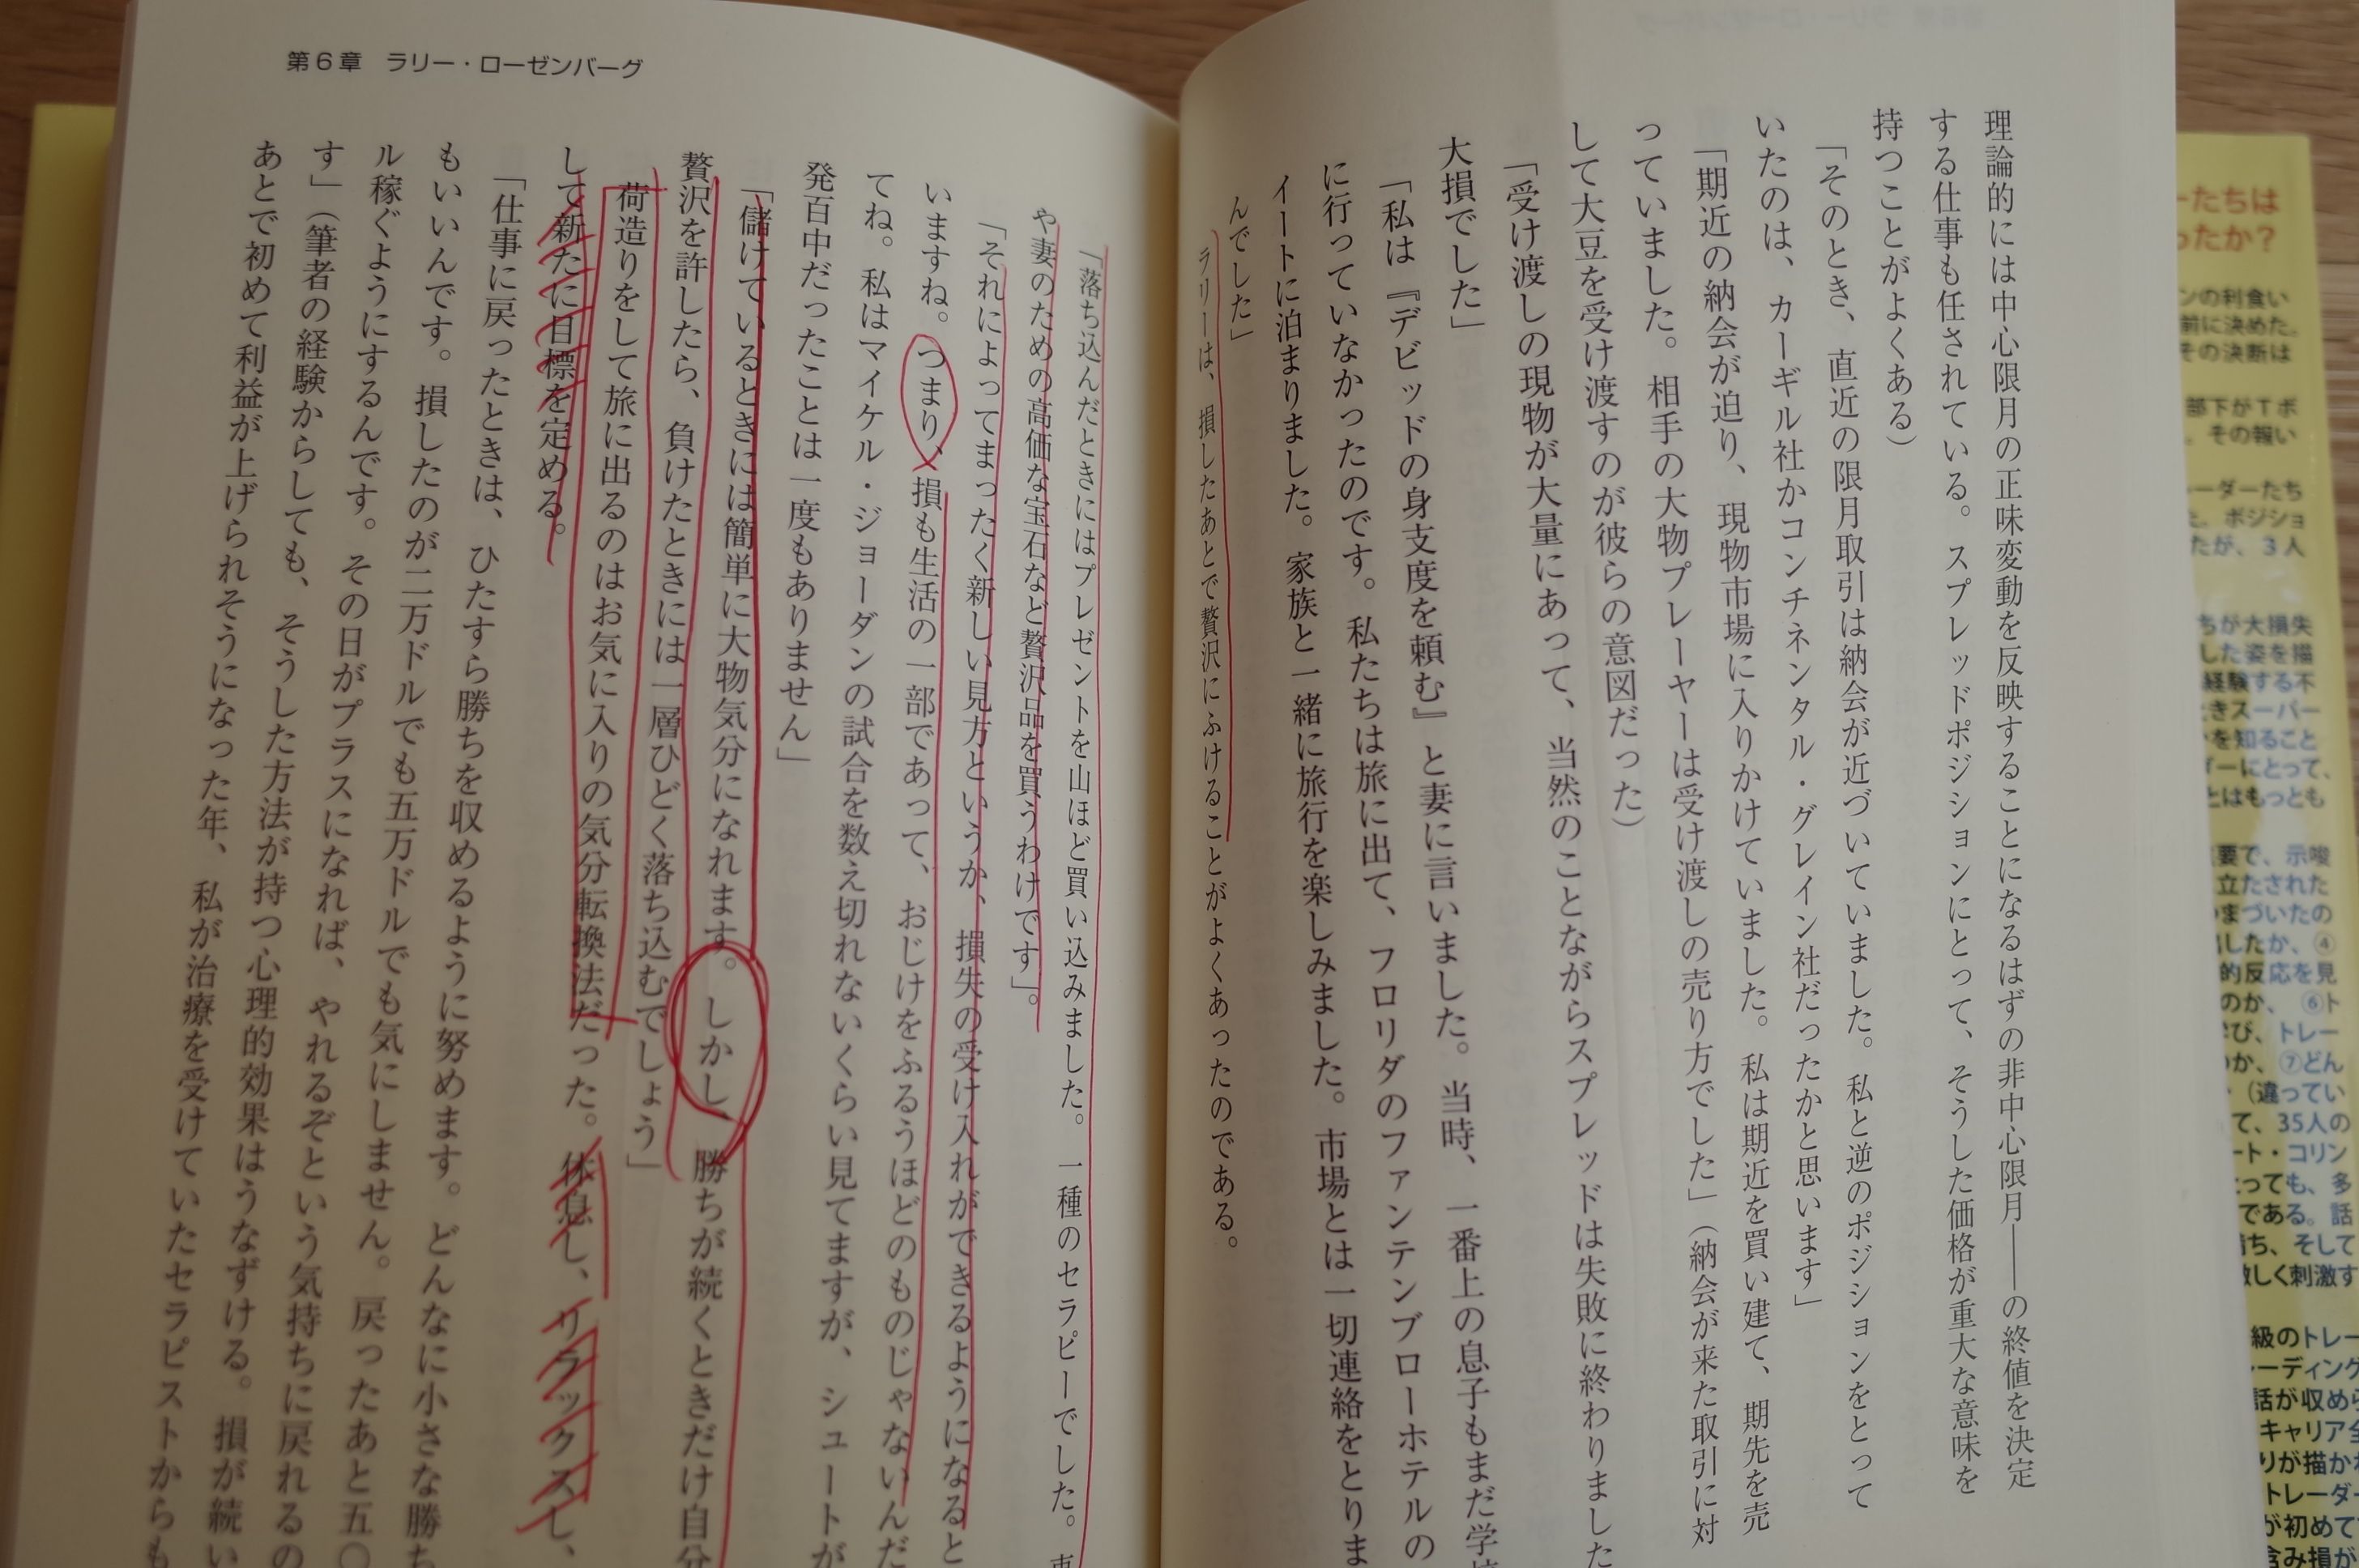 理論的には中心限月の正味変動を反映することになるはずの非中心限月――の終値を決定
する仕事も任されている。スプレッドポジションにとって、そうした価格が重大な意味を
持つことがよくある）
「そのとき、直近の限月取引は納会が近づいていました。私と逆のポジションをとって
いたのは、カーギル社かコンチネンタル・グレイン社だったかと思います」
「期近の納会が迫り、現物市場に入りかけていました。私は期近を買い建て、期先を売
っていました。相手の大物プレーヤーは受け渡しの売り方でした」（納会が来た取引に対
して大豆を受け渡すのが彼らの意図だった）
「受け渡しの現物が大量にあって、当然のことながらスプレッドは失敗に終わりました
大損でした」
「私は『デビッドの身支度を頼む』と妻に言いました。当時、一番上の息子もまだ学校
に行っていなかったのです。私たちは旅に出て、フロリダのファンテンブローホテルの
イートに泊まりました。家族と一緒に旅行を楽しみました。市場とは一切連絡をとりま
んでした」
ラリーは、損したあとで贅沢にふけることがよくあったのである。
第6章 ラリー・ローゼンバーグ
「落ち込んだときにはプレゼントを山ほど買い込みました。一種のセラピーでした。
や妻のための高価な宝石など贅沢品を買うわけです」。
「それによってまったく新しい見方というか、損失の受け入れができるようになると
いますね。つまり、損も生活の一部であって、おじけをふるうほどのものじゃないんだ
てね。私はマイケル・ジョーダンの試合を数え切れないくらい見てますが、シュートが
発百中だったことは一度もありません」
「儲けているときには簡単に大物気分になれます。しかし、勝ちが続くときだけ自分
贅沢を許したら、負けたときには一層ひどく落ち込むでしょう」
荷造りをして旅に出るのはお気に入りの気分転換法だった。休息し、リラックスし、
して新たに目標を定める。
「仕事に戻ったときは、ひたすら勝ちを収めるように努めます。どんなに小さな勝ち
もいいんです。損したのが二万ドルでも五万ドルでも気にしません。戻ったあと五〇
ル稼ぐようにするんです。その日がプラスになれば、やれるぞという気持ちに戻れるの
す」（筆者の経験からしても、そうした方法が持つ心理的効果はうなずける。損が続い
あとで初めて利益が上げられそうになった年、私が治療を受けていたセラピストからも
ーたちは
ったか？
ンの利食い
前に決めた。
その決断は
部下がTボ
。その報い
レーダーたち
た。ポジショ
たが、3人
ちが大損失
した姿を描
経験する不
ときスーパー
を知ること
ーにとって、
とはもっとも
要で、示唆
立たされた
まづいたの
したか、④
的反応を見
のか、⑥ト
び、トレー
か、⑦どん
（違ってい
て、35人の
ート・コリン
とっても、多
である。話
ち、そして
激しく刺激す
級のトレー
ーディング
話が収めら
キャリア全
りが描か
トレーダー
が初めて
含み損が